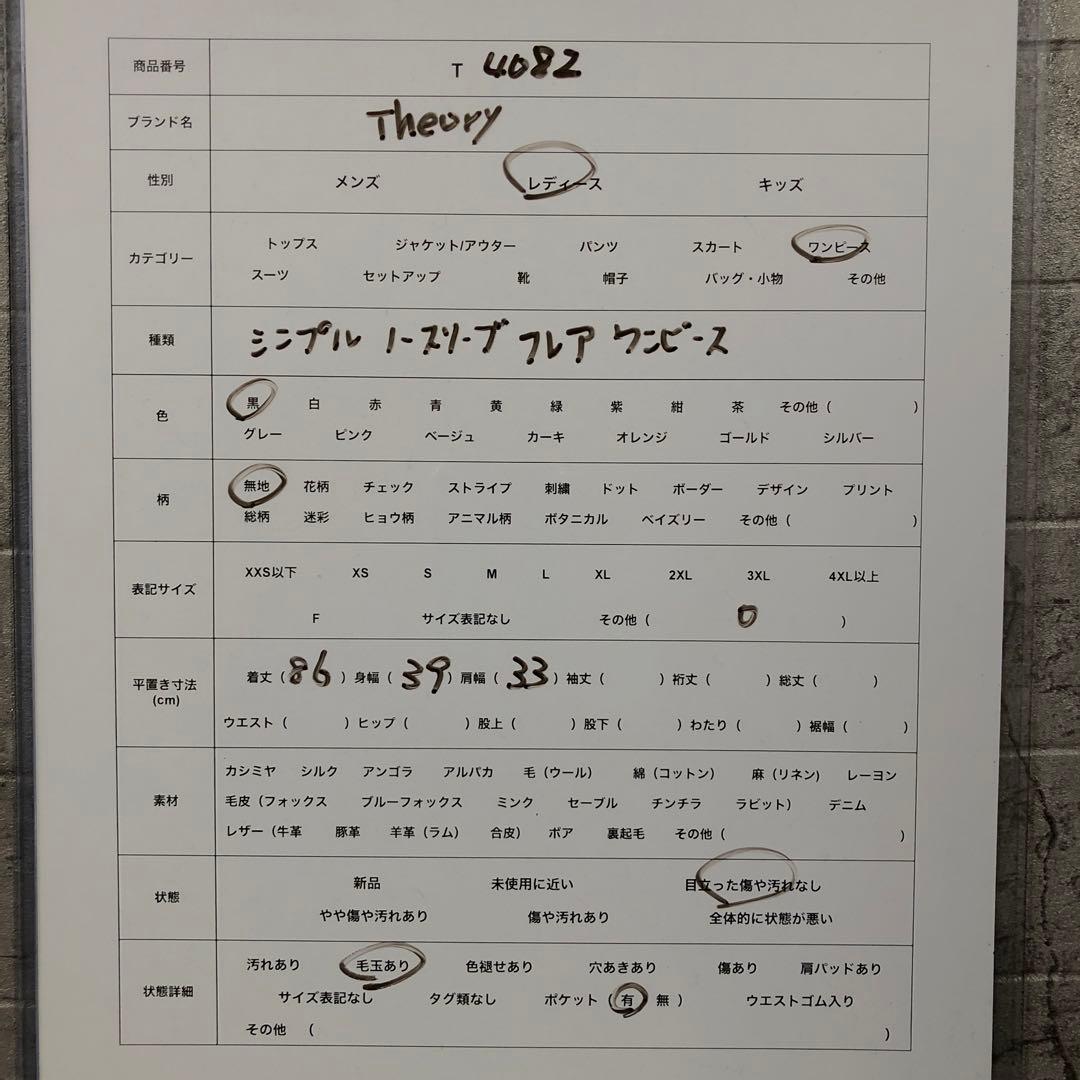 商品番号 T 4082
ブランド名 Theory
性別 メンズ レディース キッズ
カテゴリー トップス ジャケット/アウター パンツ スカート ワンピース
スーツ セットアップ 靴 帽子 バッグ・小物 その他
種類 シンプル ノースリーブ フレア ワンピース
色 黒 白 赤 青 黄 緑 紫 紺 茶 その他（ ）
グレー ピンク ベージュ カーキ オレンジ ゴールド シルバー
柄 無地 花柄 チェック ストライプ 刺繍 ドット ボーダー デザイン プリント
総柄 迷彩 ヒョウ柄 アニマル柄 ボタニカル ペイズリー その他（ ）
表記サイズ XXS以下 XS S M L XL 2XL 3XL 4XL以上
F サイズ表記なし その他（ 0 ）
平置き寸法 着丈（86）身幅（39）肩幅（33）袖丈（ ）裄丈（ ）総丈（ ）
(cm) ウエスト（ ）ヒップ（ ）股上（ ）股下（ ）わたり（ ）裾幅（ ）
素材 カシミヤ シルク アンゴラ アルパカ 毛（ウール） 綿（コットン） 麻（リネン） レーヨン
毛皮（フォックス ブルーフォックス ミンク セーブル チンチラ ラビット） デニム
レザー（牛革 豚革 羊革（ラム） 合皮） ボア 裏起毛 その他（ ）
状態 新品 未使用に近い 目立った傷や汚れなし
やや傷や汚れあり 傷や汚れあり 全体的に状態が悪い
状態詳細 汚れあり 毛玉あり 色褪せあり 穴あきあり 傷あり 肩パッドあり
サイズ表記なし タグ類なし ポケット（ 有 無 ） ウエストゴム入り
その他 （ ）